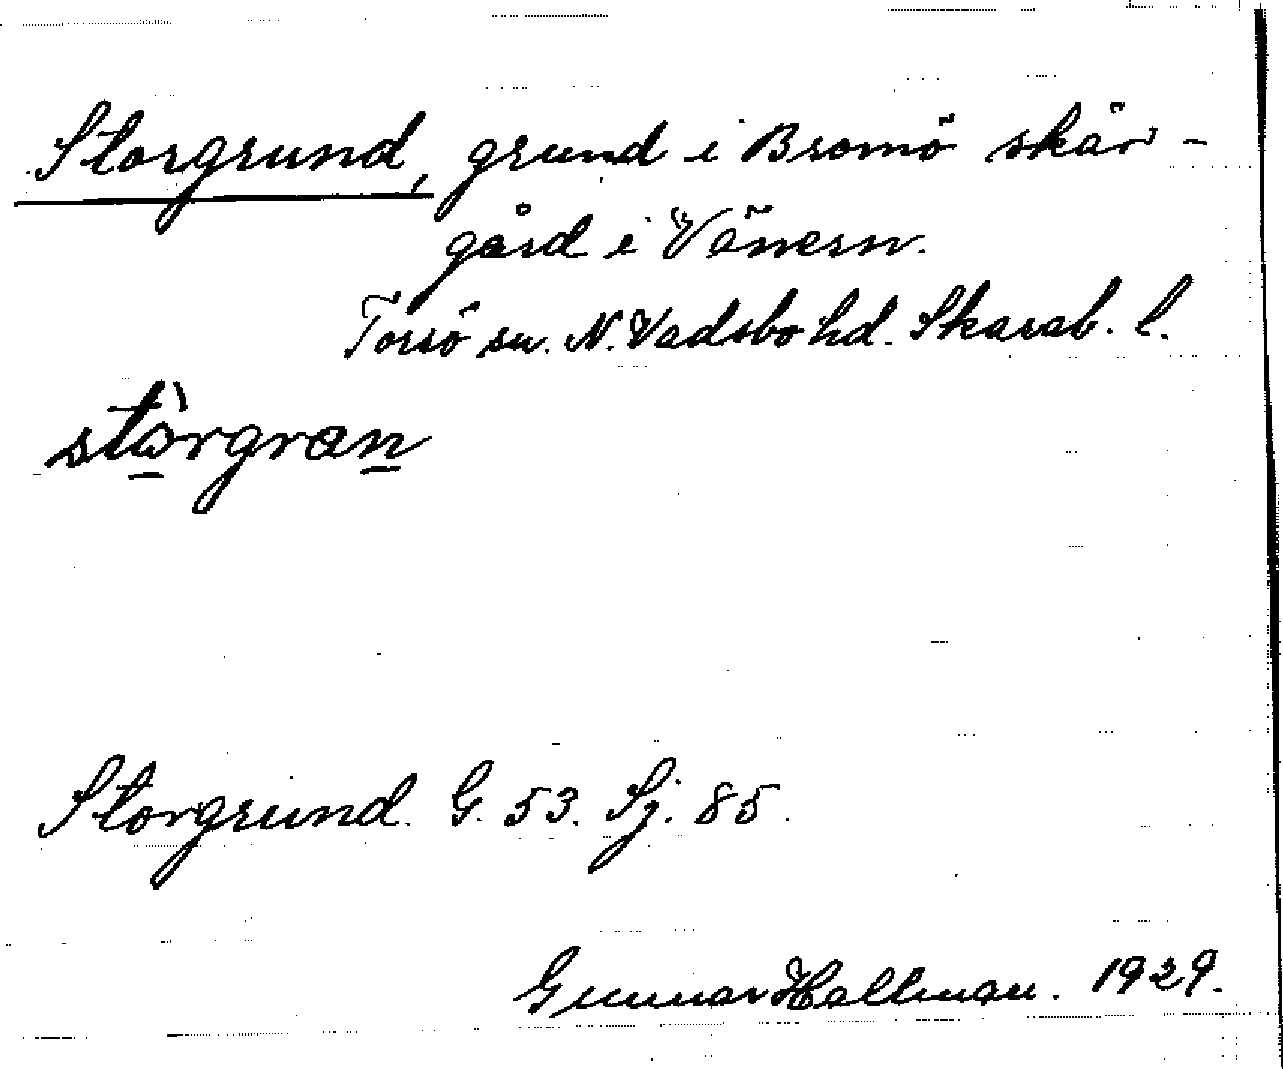 Storgrund, grund i Bromö skär-
gård i Vänern.
Torsö sn. N. Vadsbo hd. Skarab. l.
Storgrund. G. 53. Sj. 85.
Gunnar Hallman. 1929.